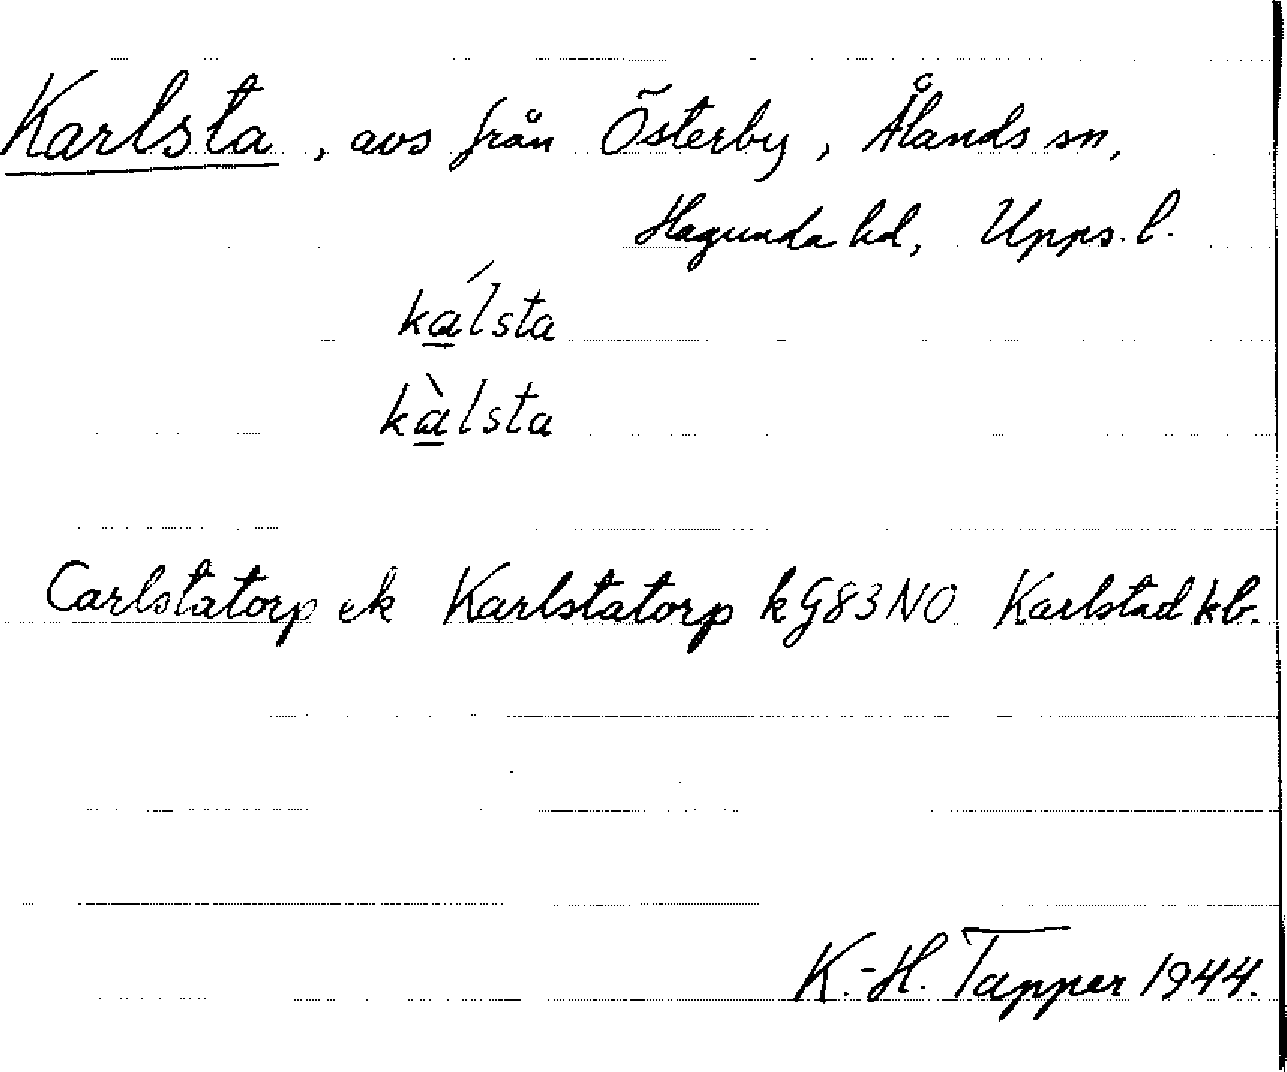 Karlsta, avs från Österby, Ålands sn,
Hagunda hd, Upps. l.
kálsta
kàlsta
Carlstatorp ek Karlstatorp k G83NO Karlstad kb.
K.-H. Tapper 1944.